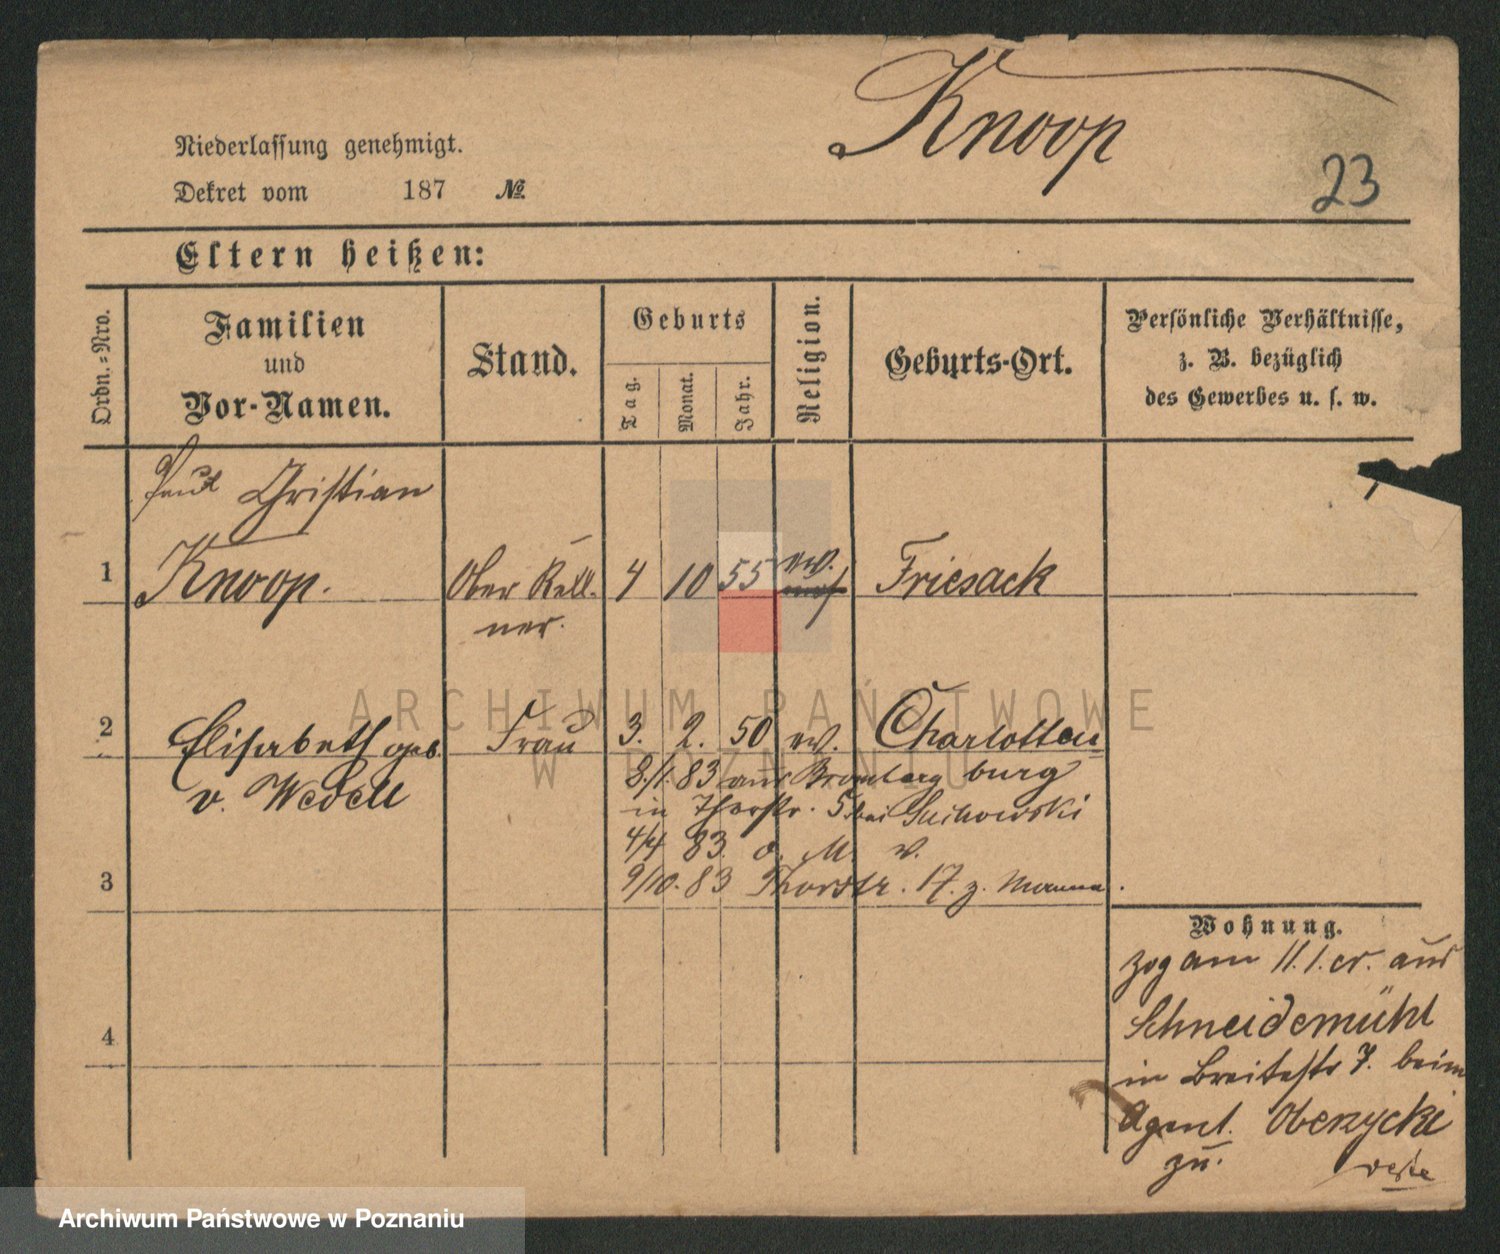 Knoop
23
Niederlassung genehmigt.
Dekret vom 187 №
Eltern heißen:
Ordn.-Nro.
Familien
und
Vor-Namen.
Stand.
Geburts
Tag.
Monat.
Jahr.
Religion.
Geburts-Ort.
Persönliche Verhältnisse,
z. B. bezüglich
des Gewerbes u. s. w.
Paul Christian
1 Knoop. Ober Kell- 4 10 55 ev. Friesack
ner.
2 Elisabeth geb. Frau 3. 2. 50 ev. Charlotten
v. Wedell
8./1. 83 aus Bromberg burg
in Thorstr. 5 bei Suchowski
4/4 83. d. M. v.
3
9/10. 83 Thorstr. 17. z.
4
Wohnung.
zog am 11.1. cr. aus
Schneidemühl
in Breitestr 7. beim
Agent. Oberzycki
zu.
ARCHIWUM PAŃSTWOWE
W POZNANIU
Archiwum Państwowe w Poznaniu